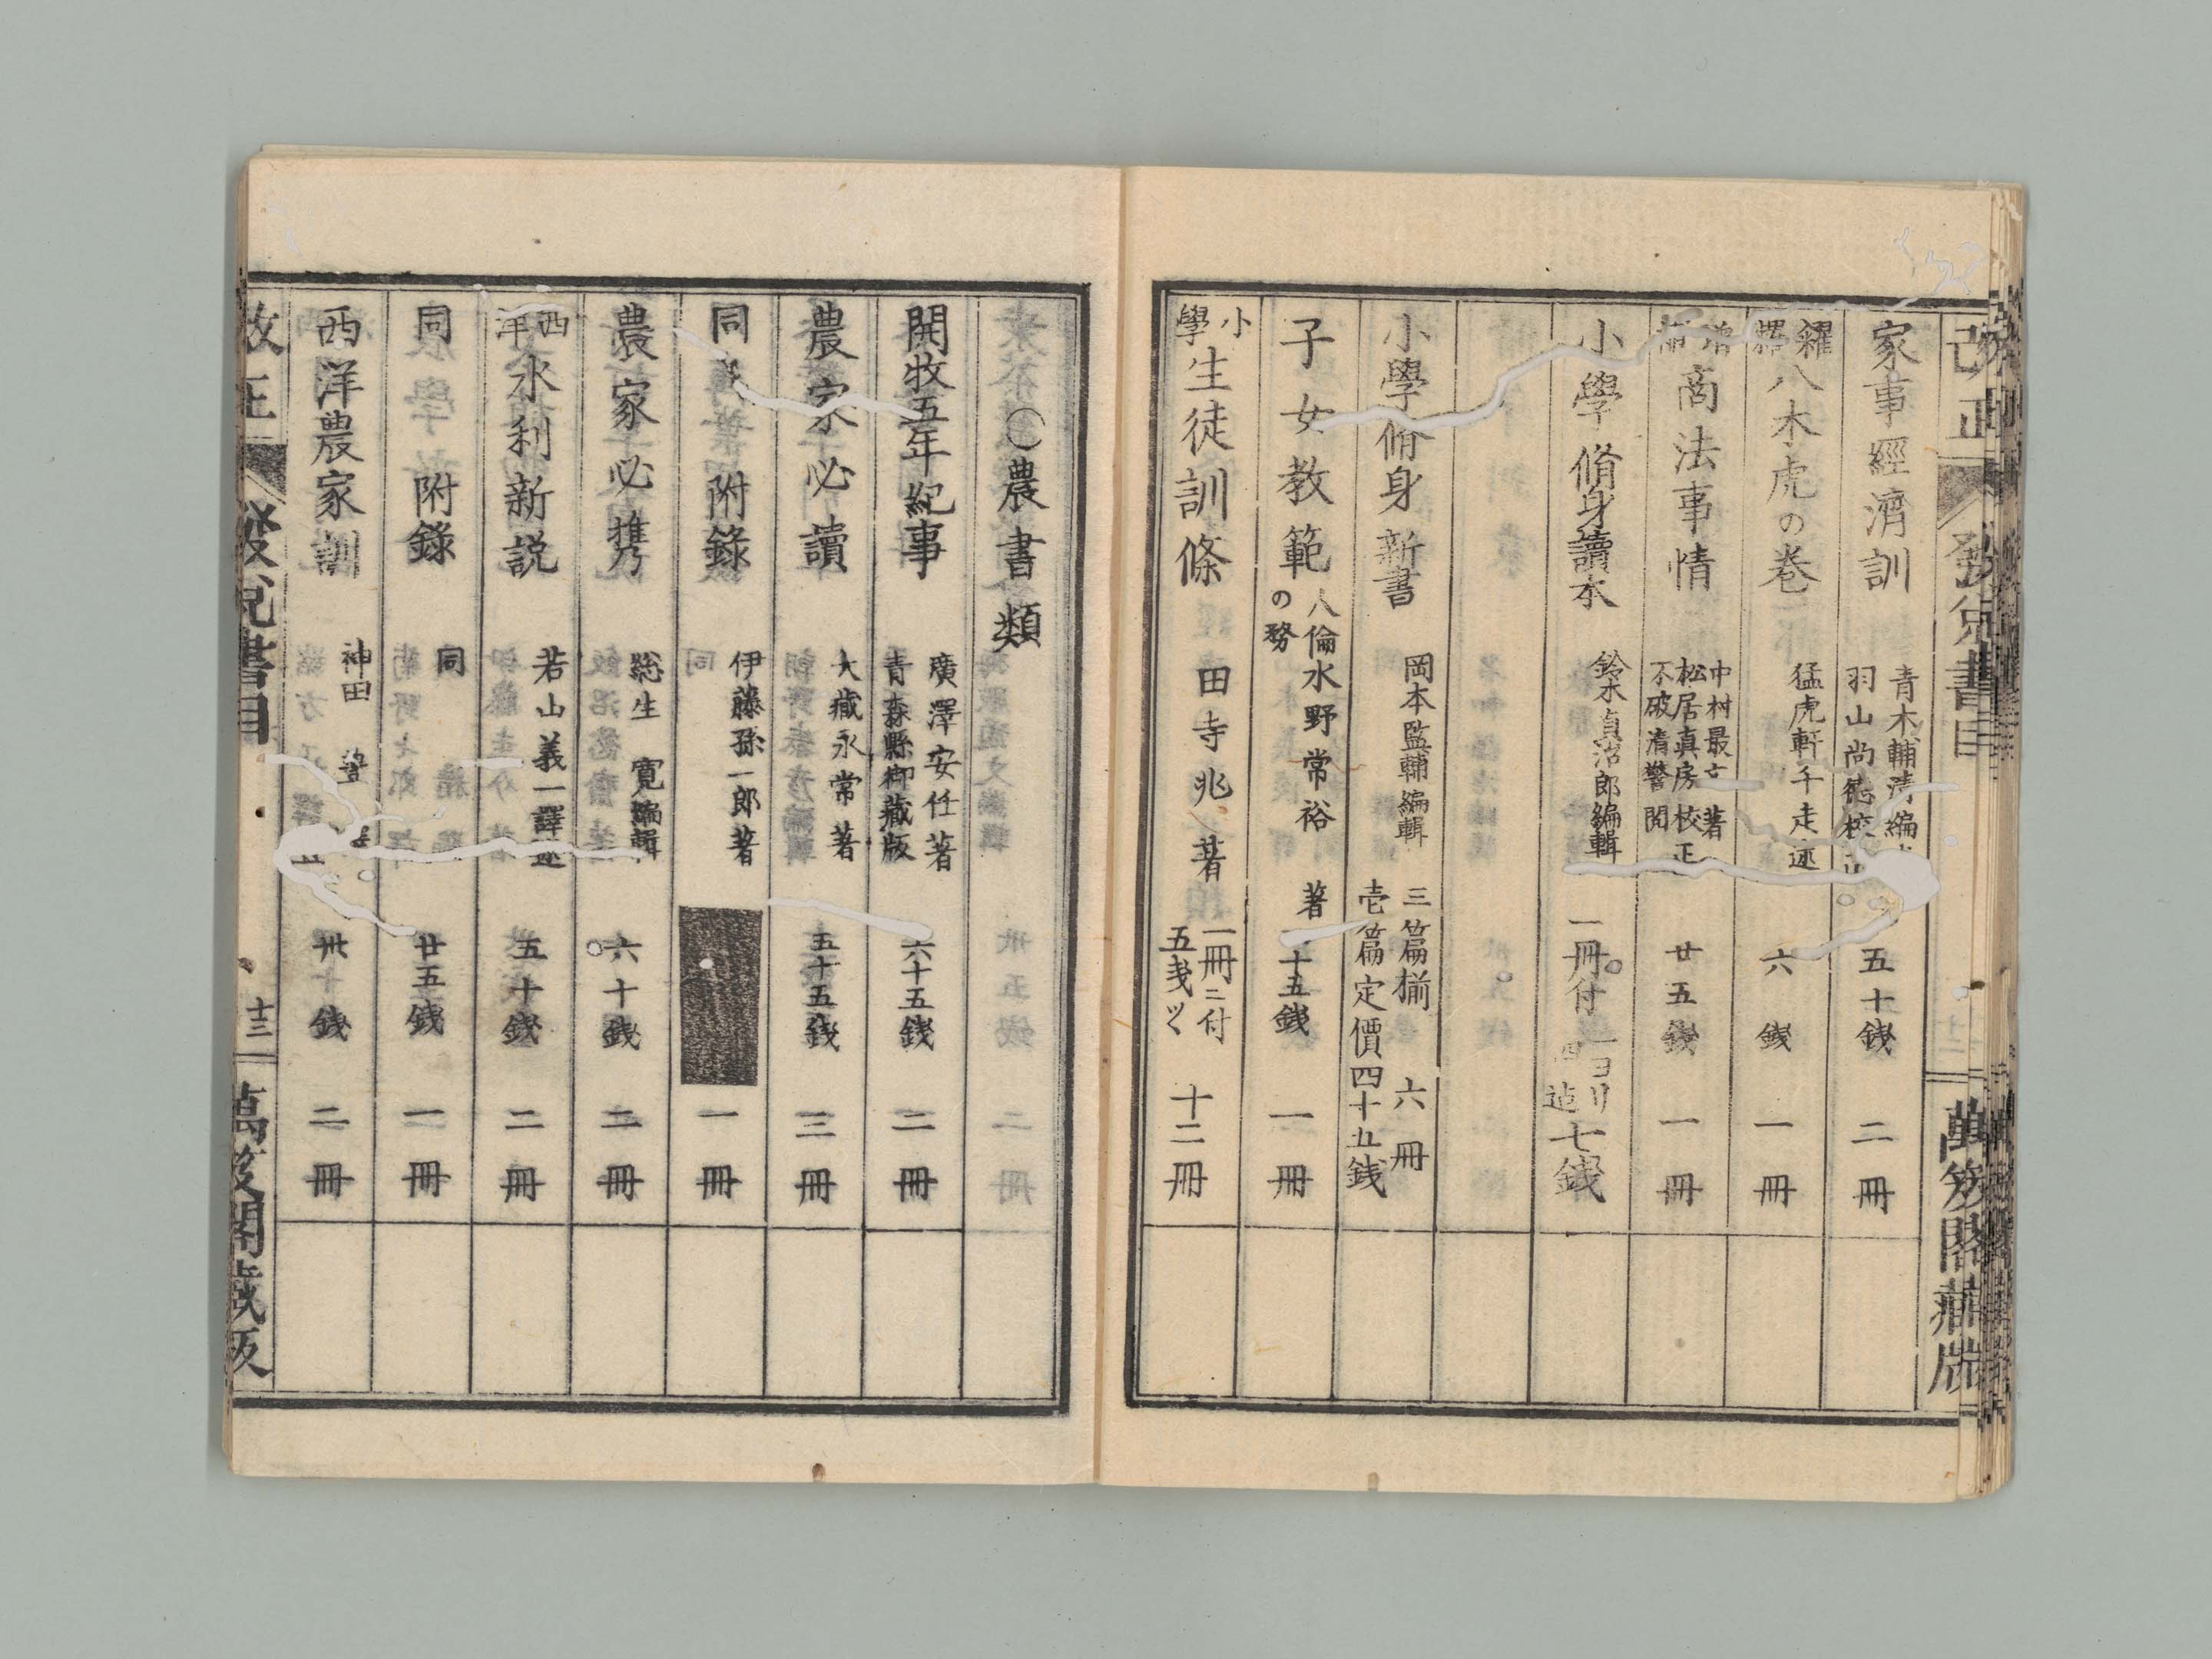 改正
發兌書目
萬笈閣藏版
家事經濟訓
青木輔清編
羽山尚德校正
五十錢
二冊
糶糴
八木虎の巻
猛虎軒千走述
六錢
一冊
增補
商法事情
中村最 著
松居真房校正
不破清警閲
廿五錢
一冊
小學脩身讀本
鈴木貞治郎編輯
一冊付
一ヨリ
四迠
七錢
小學脩身新書
岡本監輔編輯
三篇揃
六冊
壱篇定價四十五銭
子女教範
人倫の務
水野常裕著
十五錢
一冊
小學
生徒訓條
田寺兆著
一冊ニ付
五戋ツヽ
十二冊
〇農書類
開牧五年紀事
廣澤安任著
青森縣御藏版
六十五錢
二冊
農家必讀
大藏永常著
五十五錢
三冊
同附錄
伊藤孫一郎著
一冊
農家必携
総生寛編輯
六十錢
二冊
西洋
水利新説
若山義一譯述
五十錢
二冊
同附錄
同
廿五錢
一冊
西洋農家訓
神田
卅錢
二冊
改正
發兌書目
十三
萬笈閣藏版